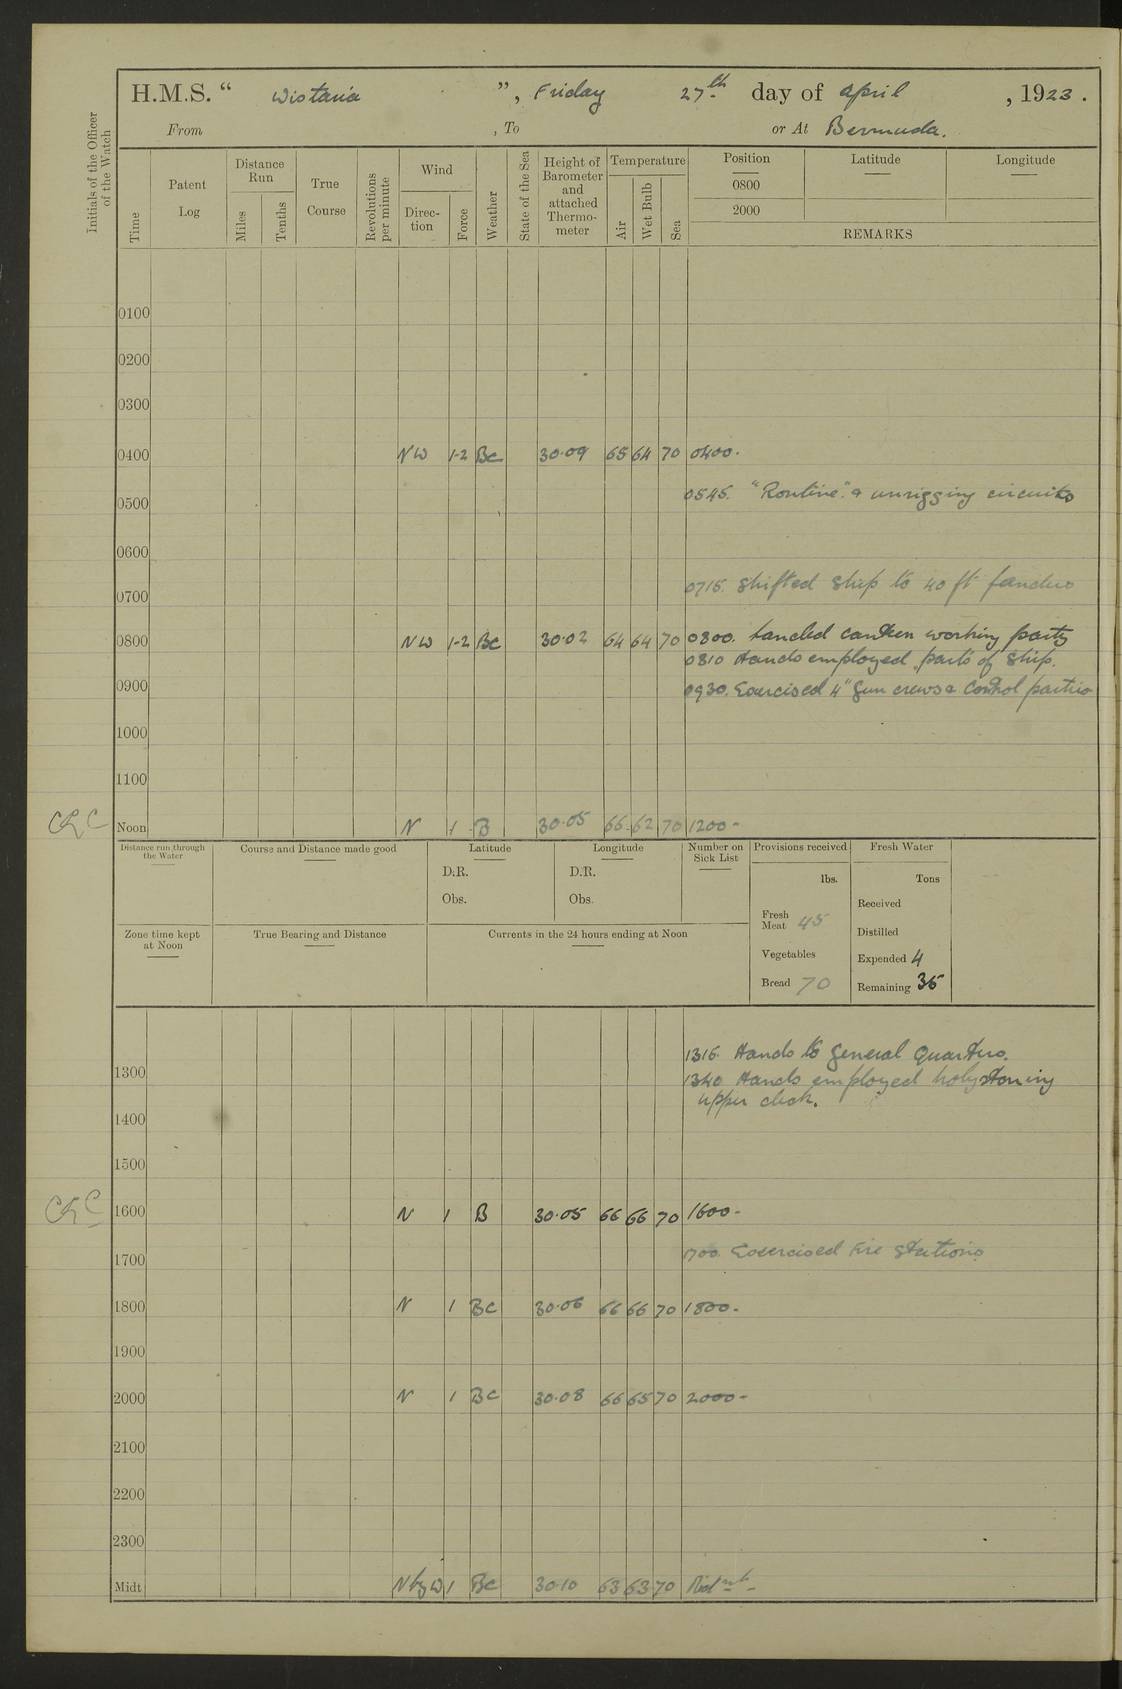 H.M.S. “ Wistaria ”, Friday 27th day of April, 1923.
From , To or At Bermuda.
Initials of the Officer of the Watch
Time
Patent Log
Distance Run
Miles
Tenths
True Course
Revolutions per minute
Wind
Direction
Force
Weather
State of the Sea
Height of Barometer and attached Thermometer
Temperature
Air
Wet Bulb
Sea
Position
0800
2000
Latitude
Longitude
REMARKS
0100
0200
0300
0400 NW 1-2 Bc 30.09 65 64 70 0400.
0545. "Routine". & unrigging circuits
0500
0600
0715. Shifted ship to 40 ft
0700
0800 NW 1-2 Bc 30.02 64 64 70 0800. Landed canteen working party
0810 Hands employed parts of ship.
0900 0930. Exercised 4" Gun crews & Control parties
1000
1100
Noon N 1 B 30.05 66 62 70 1200-
Distance run through the Water
Course and Distance made good
Latitude
D.R.
Obs.
Longitude
D.R.
Obs.
Number on Sick List
Provisions received
lbs.
Fresh Meat 45
Vegetables
Bread 70
Fresh Water
Tons
Received
Distilled
Expended 4
Remaining 36
Zone time kept at Noon
True Bearing and Distance
Currents in the 24 hours ending at Noon
1315. Hands to General Quarters.
1300
1340 Hands employed holystoning
upper deck.
1400
1500
1600 N 1 B 30.05 66 66 70 1600-
1700. Exercised Fire Stations
1700
1800 N 1 Bc 30.06 66 66 70 1800-
1900
2000 N 1 Bc 30.08 66 65 70 2000-
2100
2200
2300
Midt N by W 1 Bc 30.10 63 63 70 Midnt-